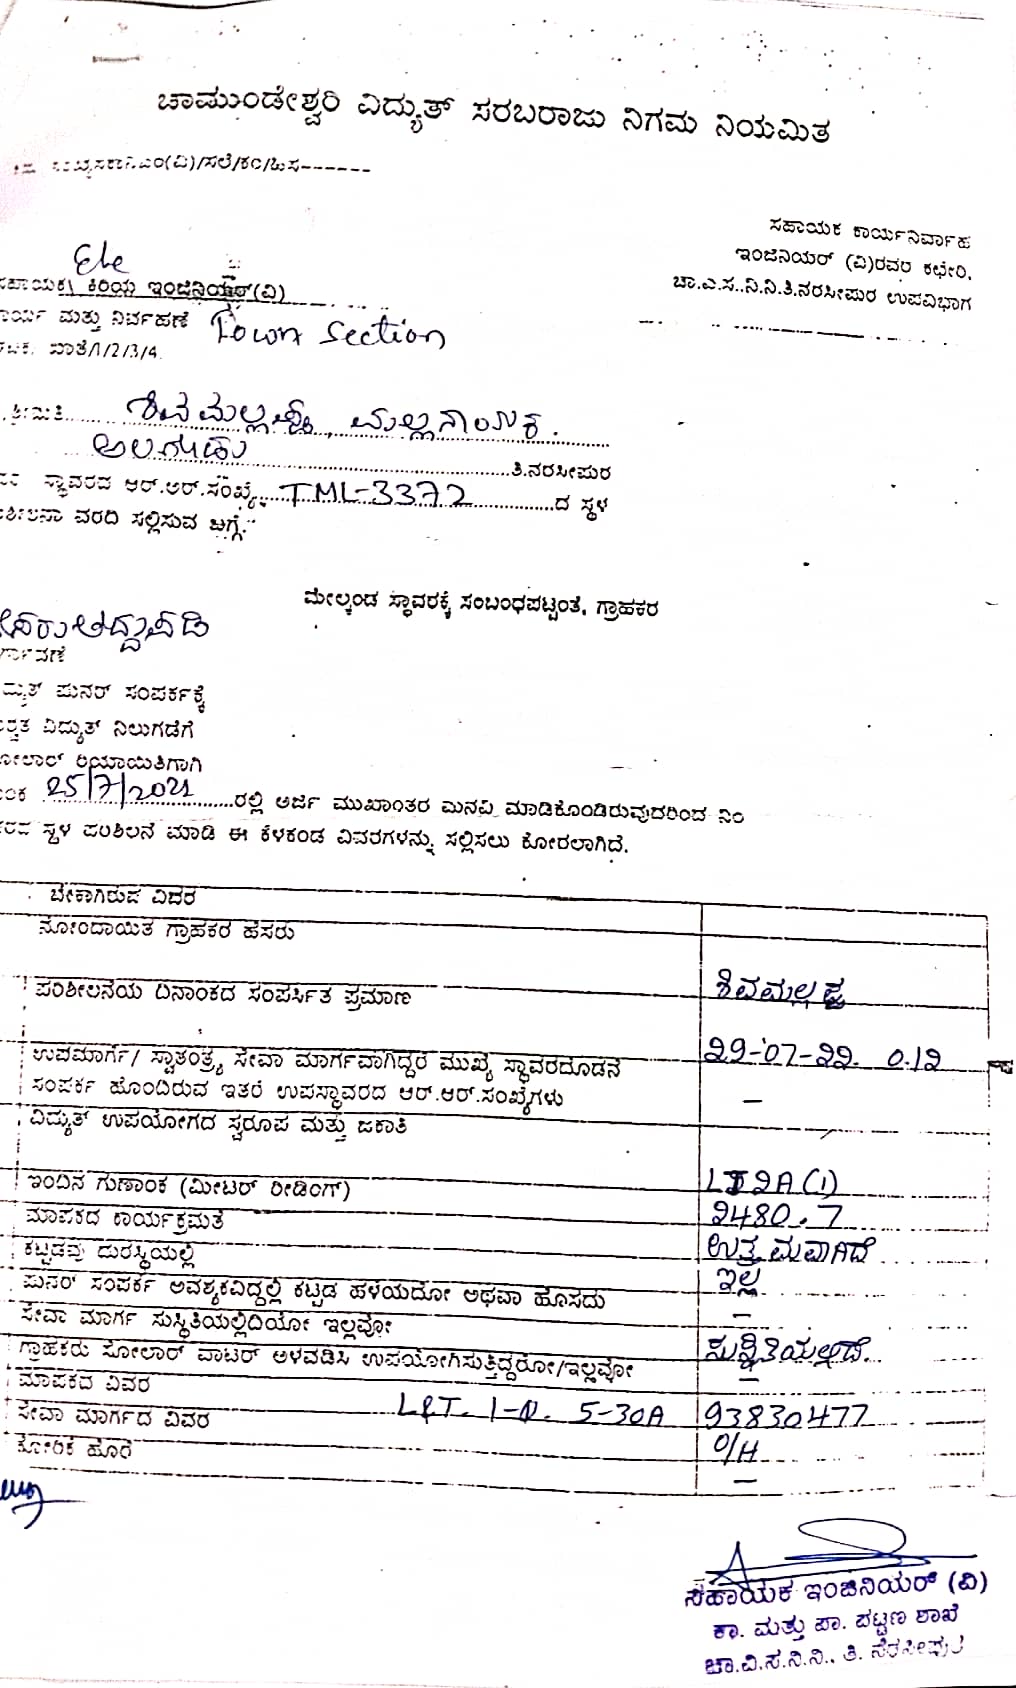 ಚಾಮುಂಡೇಶ್ವರಿ ವಿದ್ಯುತ್ ಸರಬರಾಜು ನಿಗಮ ನಿಯಮಿತ
ಸಹಾಯಕ ಕಾರ್ಯನಿರ್ವಾಹ
ಇಂಜಿನಿಯರ್ (ವಿ)ರವರ ಕಛೇರಿ,
ಚಾ.ವಿ.ಸ.ನಿ.ನಿ.ತಿ.ನರಸೀಪುರ ಉಪವಿಭಾಗ
Ele
ಕಿರಿಯ ಇಂಜಿನಿಯರ್(ವಿ)
ಮತ್ತು ನಿರ್ವಹಣೆ Town section
ಶಾಖೆ/1/2/3/4.
ಶ್ರೀಮತಿ ಶಿವಮಲ್ಲಪ್ಪ, ಮಲ್ಲನಾಯಕ.
ಆಲಗೂಡು
ತಿ.ನರಸೀಪುರ
ಸ್ಥಾವರದ ಆರ್.ಆರ್.ಸಂಖ್ಯೆ TML-3372 ದ ಸ್ಥಳ
ವರದಿ ಸಲ್ಲಿಸುವ ಬಗ್ಗೆ.
ಮೇಲ್ಕಂಡ ಸ್ಥಾವರಕ್ಕೆ ಸಂಬಂಧಪಟ್ಟಂತೆ, ಗ್ರಾಹಕರ
ಪುನರ್ ಸಂಪರ್ಕಕ್ಕೆ
ವಿದ್ಯುತ್ ನಿಲುಗಡೆಗೆ
ರಿಯಾಯಿತಿಗಾಗಿ
25/7/2021 ರಲ್ಲಿ ಅರ್ಜಿ ಮುಖಾಂತರ ಮನವಿ ಮಾಡಿಕೊಂಡಿರುವುದರಿಂದ ನಿಂ
ಸ್ಥಳ ಪರಿಶೀಲನೆ ಮಾಡಿ ಈ ಕೆಳಕಂಡ ವಿವರಗಳನ್ನು ಸಲ್ಲಿಸಲು ಕೋರಲಾಗಿದೆ.
ಬೇಕಾಗಿರುವ ವಿವರ
ನೋಂದಾಯಿತ ಗ್ರಾಹಕರ ಹೆಸರು
ಪರಿಶೀಲನೆಯ ದಿನಾಂಕದ ಸಂಪರ್ಸಿತ ಪ್ರಮಾಣ ಶಿವಮಲ್ಲಪ್ಪ
ಉಪಮಾರ್ಗ/ ಸ್ವಾತಂತ್ರ್ಯ ಸೇವಾ ಮಾರ್ಗವಾಗಿದ್ದರೆ ಮುಖ್ಯ ಸ್ಥಾವರದೂಡನೆ 29-07-22. 0.12
ಸಂಪರ್ಕ ಹೊಂದಿರುವ ಇತರೆ ಉಪಸ್ಥಾವರದ ಆರ್.ಆರ್.ಸಂಖ್ಯೆಗಳು –
ವಿದ್ಯುತ್ ಉಪಯೋಗದ ಸ್ವರೂಪ ಮತ್ತು ಜಕಾತಿ
ಇಂದಿನ ಗುಣಾಂಕ (ಮೀಟರ್ ರೀಡಿಂಗ್) LT2A(1)
ಮಾಪಕದ ಕಾರ್ಯಕ್ರಮತೆ 2480.7
ಕಟ್ಟಡವು ದುರಸ್ಥಿಯಲ್ಲಿ ಉತ್ತಮವಾಗಿದೆ
ಪುನರ್ ಸಂಪರ್ಕ ಅವಶ್ಯಕವಿದ್ದಲ್ಲಿ ಕಟ್ಟಡ ಹಳೆಯದೋ ಅಥವಾ ಹೊಸದು ಇಲ್ಲ
ಸೇವಾ ಮಾರ್ಗ ಸುಸ್ಥಿತಿಯಲ್ಲಿದಿಯೋ ಇಲ್ಲವೋ –
ಗ್ರಾಹಕರು ಸೋಲಾರ್ ವಾಟರ್ ಅಳವಡಿಸಿ ಉಪಯೋಗಿಸುತ್ತಿದ್ದರೋ/ಇಲ್ಲವೋ ಸುಸ್ಥಿತಿಯಲ್ಲಿದೆ.
ಮಾಪಕದ ವಿವರ –
ಸೇವಾ ಮಾರ್ಗದ ವಿವರ L&T. 1-N. 5-30A 93830477
ಕೋರಿಕೆ ಹೊರೆ O/H
–
ಸಹಾಯಕ ಇಂಜಿನಿಯರ್ (ವಿ)
ಕಾ. ಮತ್ತು ಪಾ. ಪಟ್ಟಣ ಶಾಖೆ
ಚಾ.ವಿ.ಸ.ನಿ.ನಿ., ತಿ. ನರಸೀಪುರ